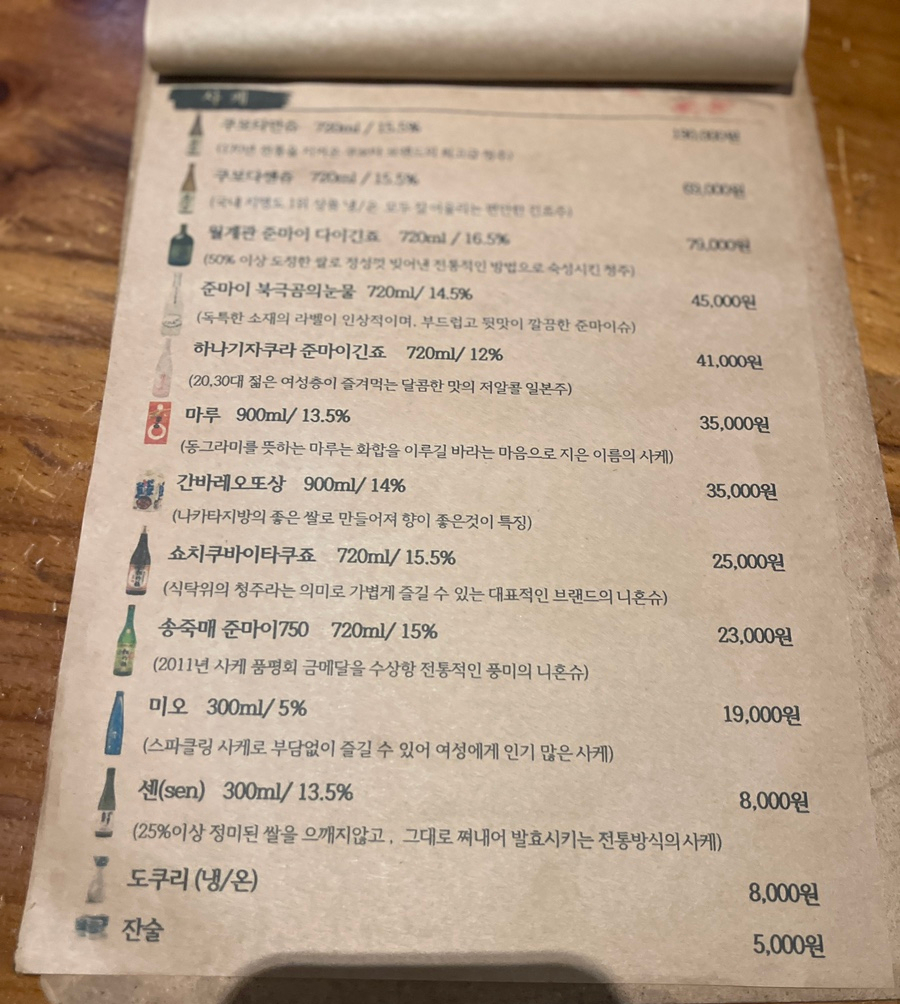 사케
쿠보다만쥬 720ml / 15.5%
쿠보다센쥬 720ml / 15.5%
69,000원
(국내 지명도 1위 상품 냉/온 모두 잘 어울리는 편안한 긴죠주)
월계관 준마이 다이긴죠 720ml / 16.5%
79,000원
(50% 이상 도정한 쌀로 정성껏 빚어낸 전통적인 방법으로 숙성시킨 청주)
준마이 북극곰의눈물 720ml/ 14.5%
45,000원
(독특한 소재의 라벨이 인상적이며, 부드럽고 뒷맛이 깔끔한 준마이슈)
하나기자쿠라 준마이긴죠 720ml/ 12%
41,000원
(20,30대 젊은 여성층이 즐겨먹는 달콤한 맛의 저알콜 일본주)
마루 900ml/ 13.5%
35,000원
(동그라미를 뜻하는 마루는 화합을 이루길 바라는 마음으로 지은 이름의 사케)
간바레오또상 900ml/ 14%
35,000원
(나카타지방의 좋은 쌀로 만들어져 향이 좋은것이 특징)
쇼치쿠바이타쿠죠 720ml/ 15.5%
25,000원
(식탁위의 청주라는 의미로 가볍게 즐길 수 있는 대표적인 브랜드의 니혼슈)
송죽매 준마이750 720ml/ 15%
23,000원
(2011년 사케 품평회 금메달을 수상항 전통적인 풍미의 니혼슈)
미오 300ml/ 5%
19,000원
(스파클링 사케로 부담없이 즐길 수 있어 여성에게 인기 많은 사케)
센(sen) 300ml/ 13.5%
8,000원
(25%이상 정미된 쌀을 으깨지않고 , 그대로 쪄내어 발효시키는 전통방식의 사케)
도쿠리 (냉/온)
8,000원
잔술
5,000원